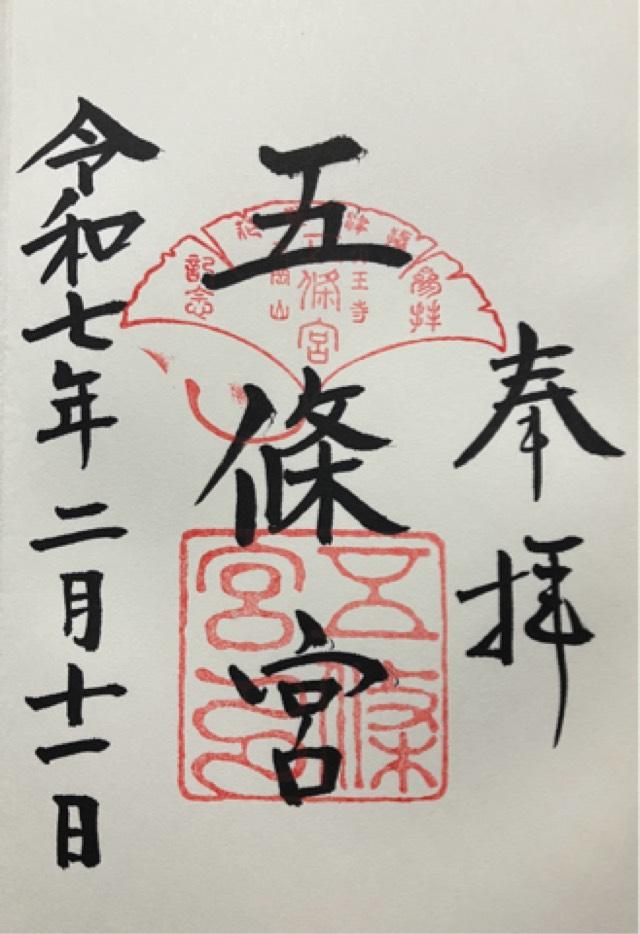 奉拝
五條宮
令和七年二月十一日
參拝
五條宮
記念
五條宮印